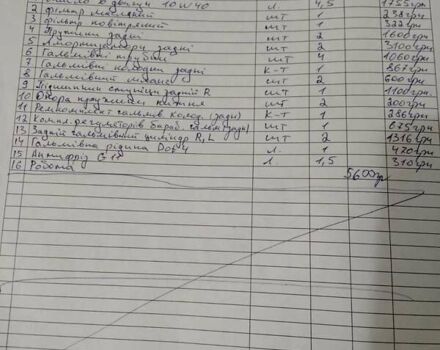 двигун 10W40 л. 4,5 1755грн
2 фільтр масляний шт 1 238грн
3 фільтр повітряний шт 1 322грн
4 Пружини задні шт 2 1600грн
5 Амортизатори задні шт 2 3100грн
6 Гальмівні трубки шт 4 1060грн
7 Гальмівні колодки задні к-т 1 867грн
8 Гальмівний шланг шт 2 600грн
9 Підшипник ступиці задній R шт 1 1100грн
10 Опора пружини нижня шт 2 200грн
11 Ремкомплект гальмів. колод. (задн) к-т 1 236грн
12 Компл. регуляторів бараб. гальм (задн) шт 2 675грн
13 Задній гальмівний циліндр R,L шт 2 1316грн
14 Гальмівна рідина Dot4 л. 1 470грн
15 Антифріз G л. 1,5 310грн
16 Робота 5600гр